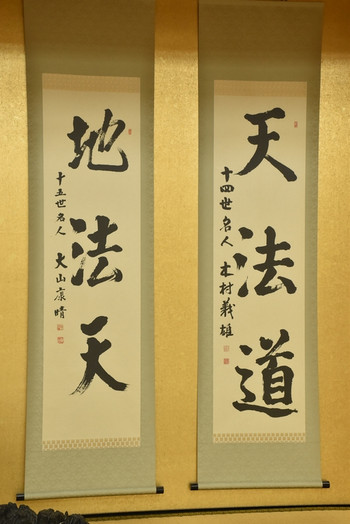 天法道
十四世名人 木村義雄
地法天
十五世名人 大山康晴